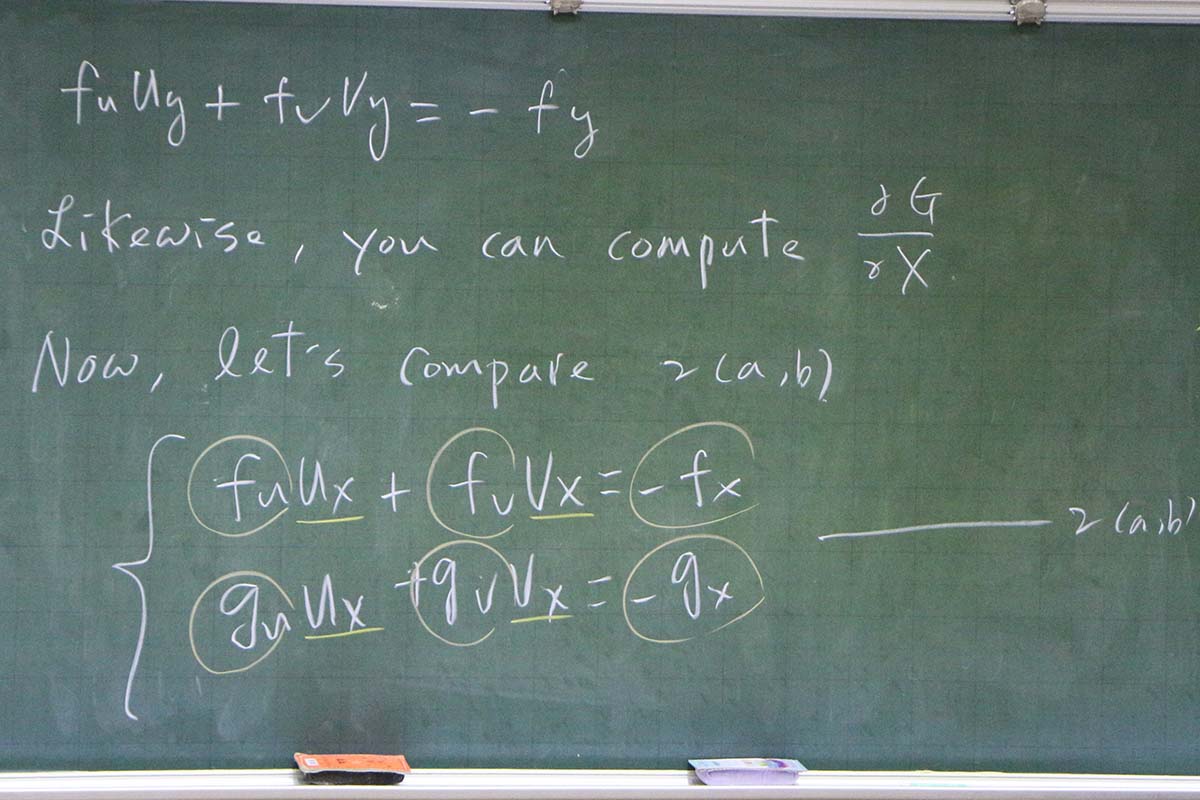 fu uy + fv vy = - fy
Likewise, you can compute ∂G/∂X
Now, let's compare 2(a,b)
fu ux + fv vx = - fx
2(a,b)
gu ux + gv vx = - gx